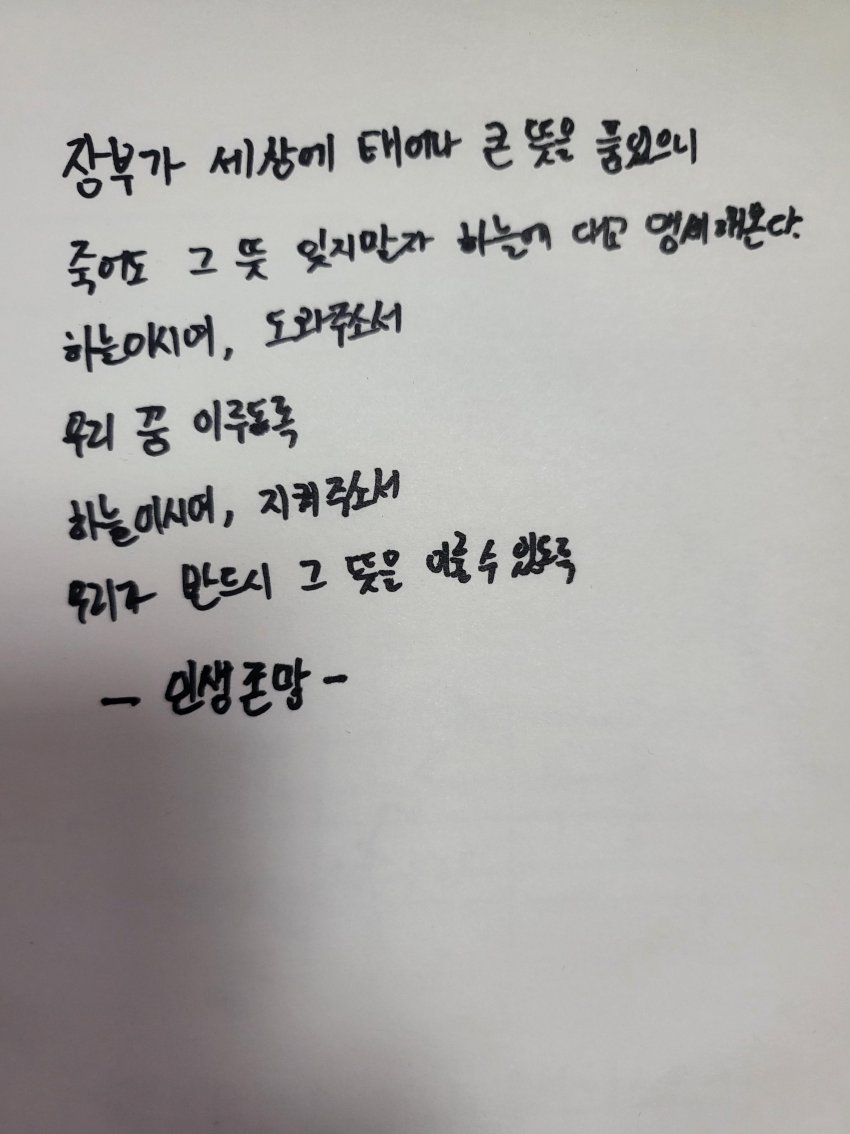 장부가 세상에 태어나 큰 뜻을 품었으니
죽어도 그 뜻 잊지말자 하늘에 대고 맹세해본다.
하늘이시여, 도와주소서
우리 꿈 이루도록
하늘이시여, 지켜주소서
우리가 반드시 그 뜻을 이룰 수 있도록
- 인생존망 -